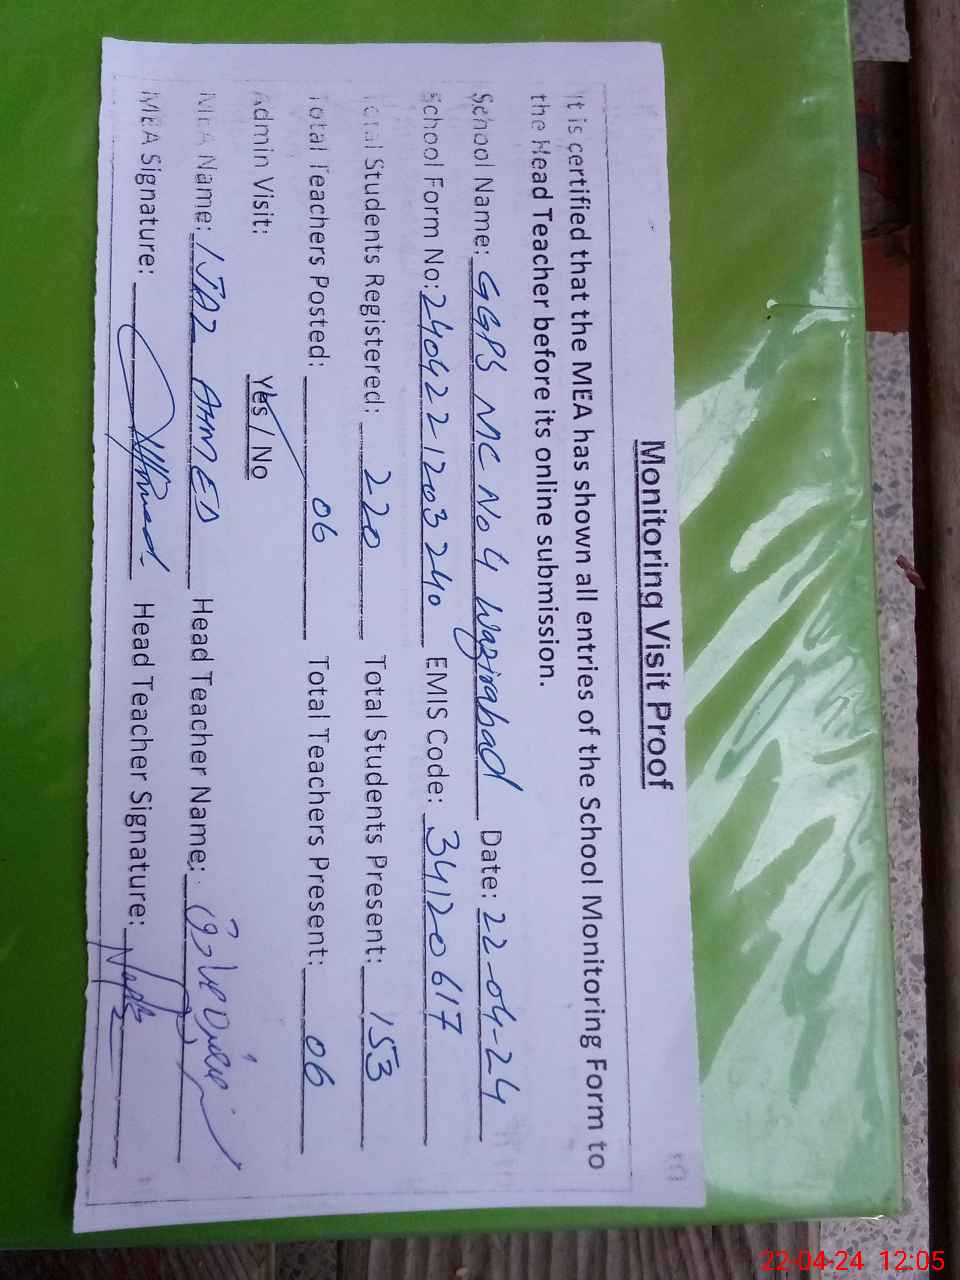 Monitoring Visit Proof
It is certified that the MEA has shown all entries of the School Monitoring Form to
the Head Teacher before its online submission.
School Name: GGPS MC No 4 Wazirabad Date: 22-04-24
School Form No: 2404221203240 EMIS Code: 34120617
Total Students Registered: 220 Total Students Present: 153
Total Teachers Posted: 06 Total Teachers Present: 06
Admin Visit: Yes / No
MEA Name: IJAZ AHMED Head Teacher Name:
MEA Signature: Head Teacher Signature:
22-04-24 12:05